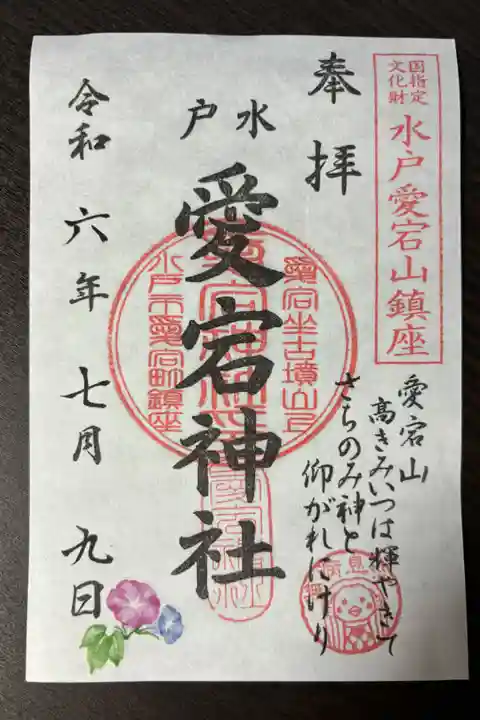 国指定
文化財
水戸愛宕山鎮座
奉拝
水戸
愛宕神社
愛宕山
高きみいつは輝やきて
さちのみ神と
仰がれにけり
愛宕坐古墳山上
水戸市愛宕町鎮座
令和六年七月九日